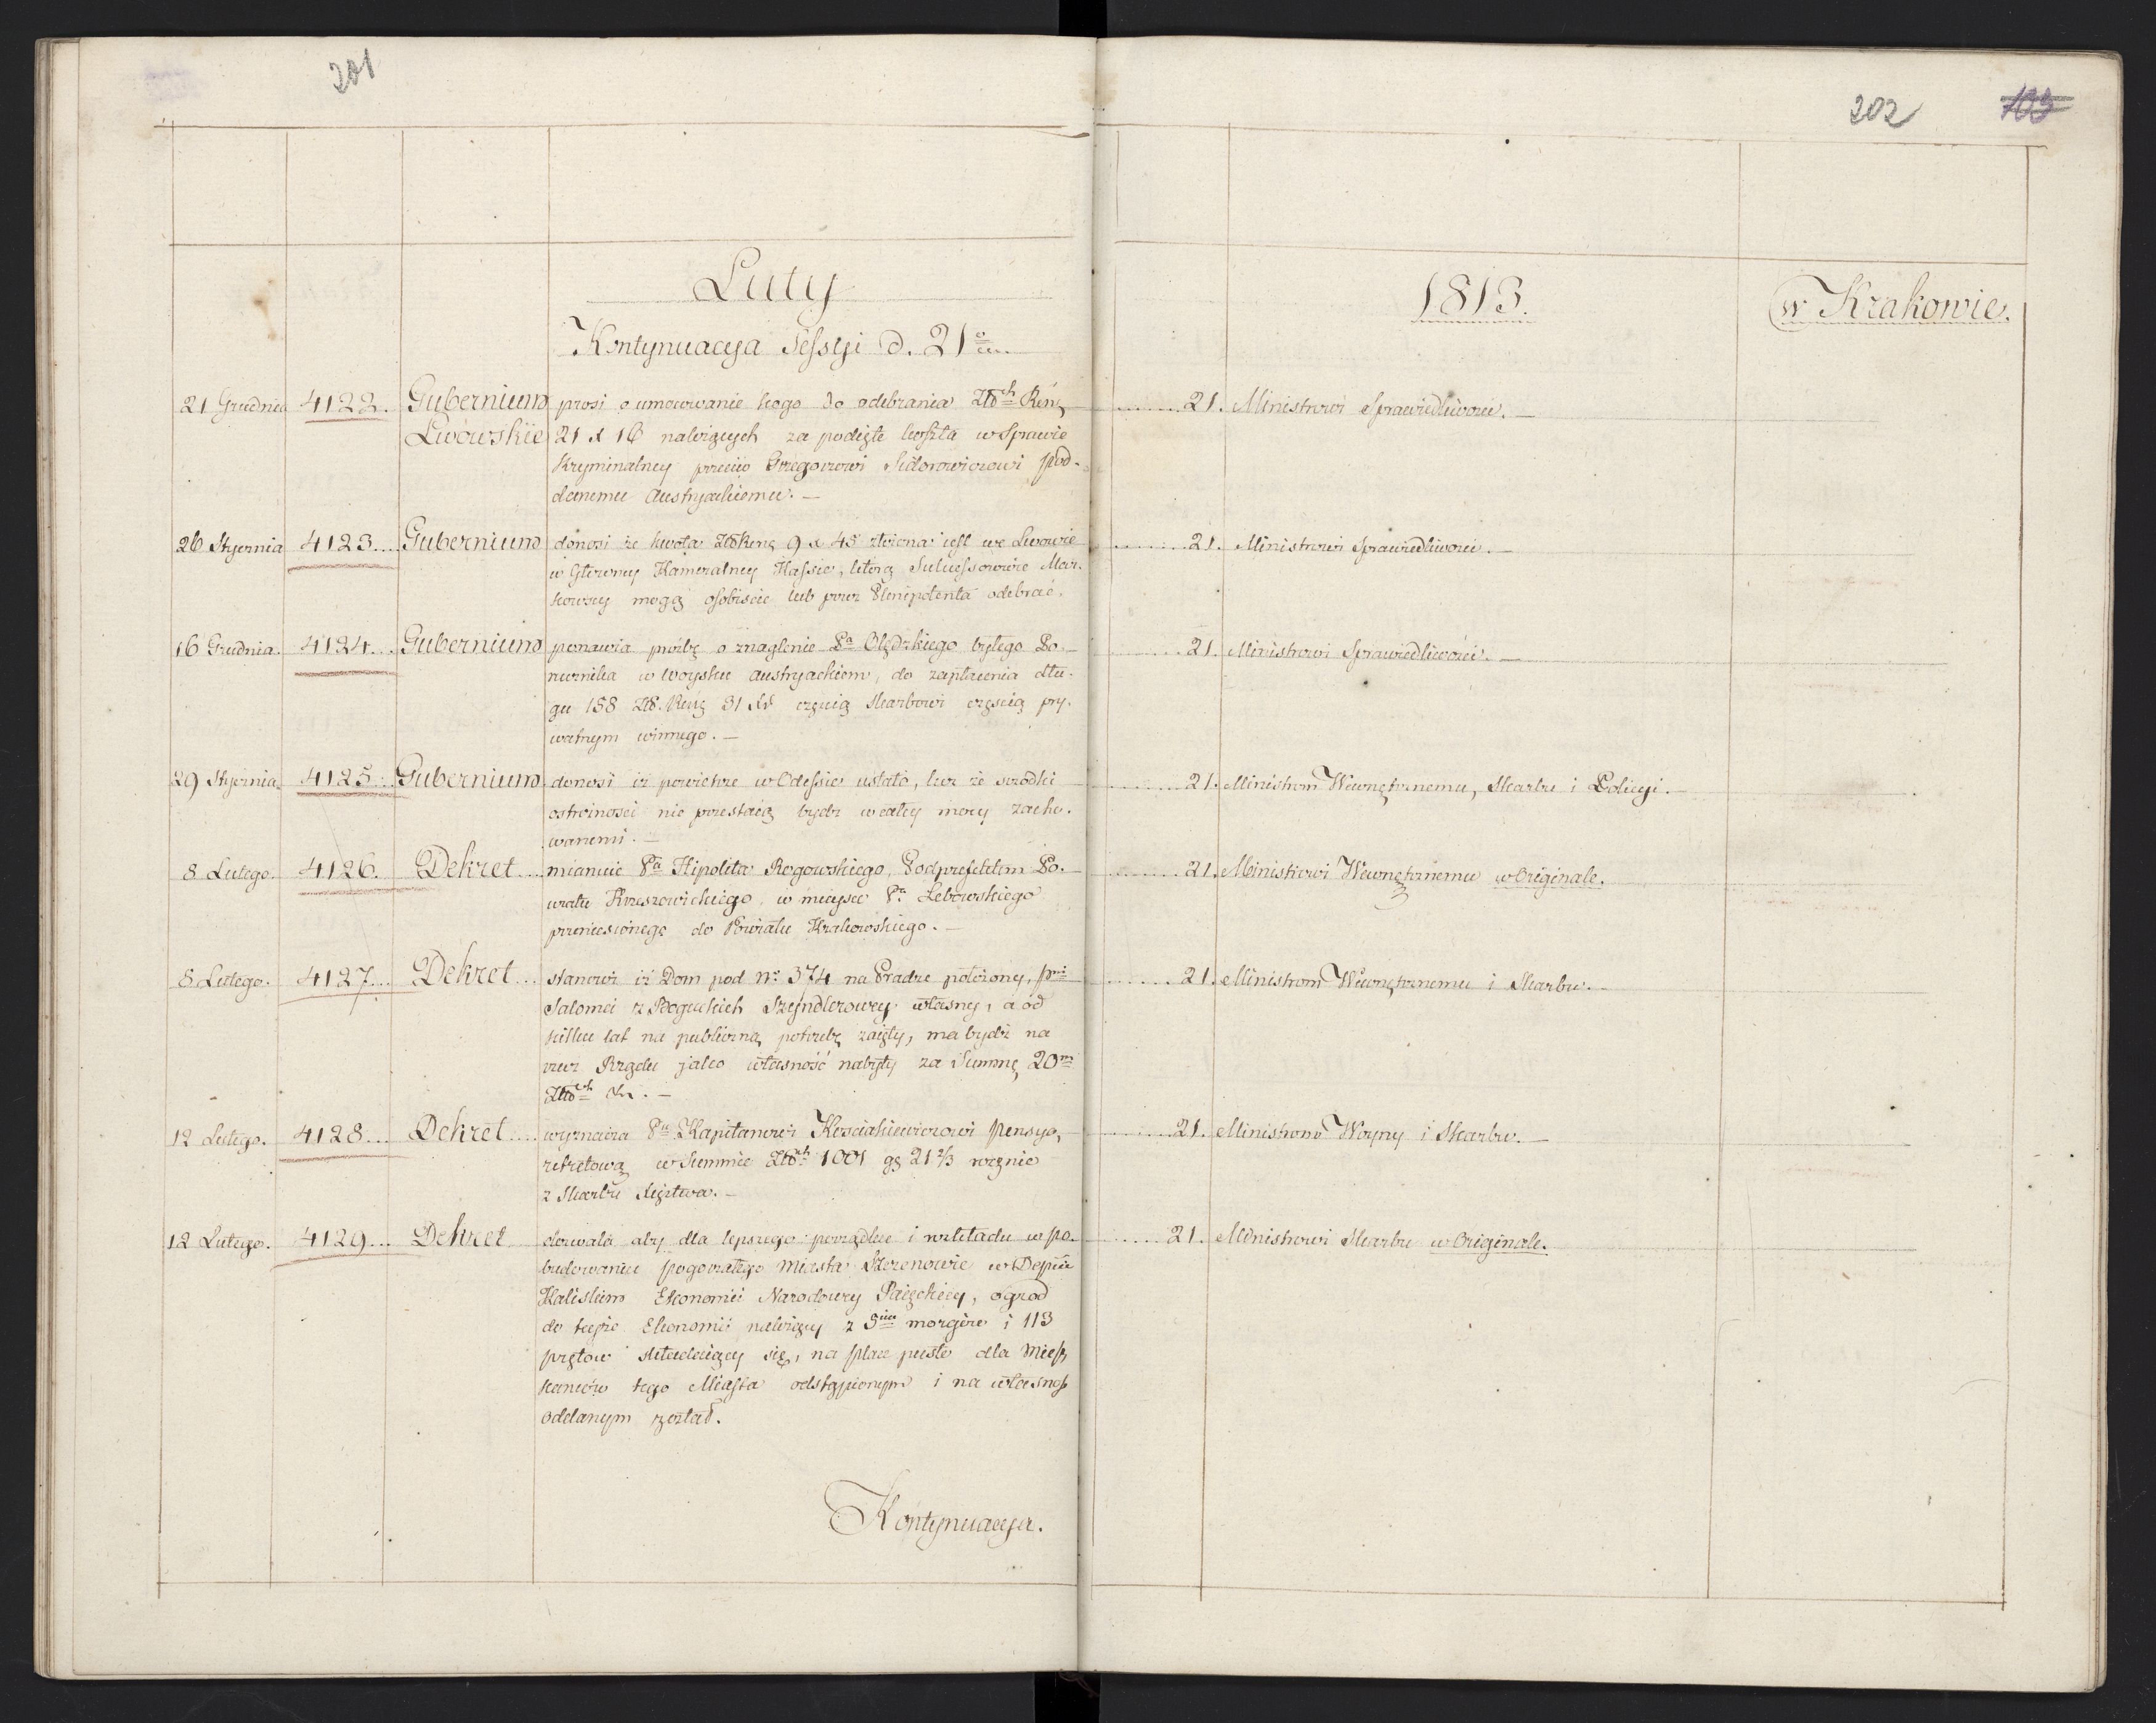 201
202 103
Luty
1813.
w Krakowie.
Kontynuacya Sessyi d. 21
21 Grudnia 4122. Gubernium prosi o umocowanie kogo do odebrania Złłch Reńs 21. Ministrowi Sprawiedliwości. —
Lwowskie 21 x 16 należących za podięte koszta w Sprawie
Kryminalney przeciw Grzegorzowi Sidorowiczowi pod-
danemu Austryackiemu. —
26 Stycznia 4123. Gubernium donosi że kwota Reńs 9 x 45 złożona iest we Lwowie 21. Ministrowi Sprawiedliwości. —
w Głowney Kameralney Kassie, którą Sukcessorowie Mar-
kowscy mogą osobiscie lub przez Plenipotenta odebrać.
16 Grudnia. 4124. Gubernium ponawia prożbę o znaglenie Pa Olędzkiego byłego Po- 21. Ministrowi Sprawiedliwości. —
rucznika w woysku austryackiem, do zapłacenia dłu-
gu 158 Reńs 31 częscią Skarbowi częscią pry-
watnym winnego. —
29 Stycznia. 4125. Gubernium donosi iż powietrze w Odessie ustało, lecz że srodki 21. Ministrom Wewnętrznemu, Skarbu i Policyi. —
ostrożnosci nie przestaią bydz w całey mocy zacho-
wanemi. —
8 Lutego. 4126. Dekret mianuie Pa Hipolita Rogowskiego, Podprefektem Po- 21. Ministrowi Wewnętrznemu w Originale.
wiatu Krzeszowickiego w mieysce Pa Lebowskiego
przeniesionego do Powiatu Krakowskiego. —
8 Lutego. 4127. Dekret stanowi iż Dom pod No 374 na Pradze położony, Pni 21. Ministrom Wewnętrznemu i Skarbu. —
Salomei z Boguckich Szyndlerowey własny, a od
kilku lat na publiczną potrzebę zaięty, ma bydż na
rzecz Rządu jako własność nabyty za Summę 20m
Złłch
12 Lutego. 4128. Dekret wyznacza Pu Kapitanowi Kosciakiewiczowi pensyą 21. Ministrom Woyny i Skarbu. —
retretową w Summie Złłch 1001 gg 21 2/3 rocznie
z Skarbu Xięztwa. —
12 Lutego. 4129. Dekret dozwala aby dla lepszego porządku i rozkładu w po- 21. Ministrowi Skarbu w Originale.
budowaniu pogorzałego miasta w Depcie
Kaliskim Ekonomii Narodowey ogrod
do teyże Ekonomii należący z morgow i 113
prętow składaiący się, na place puste dla miesz
kancow tego Miasta odstąpionym i na własnos
oddanym został.
Kontynuacya.